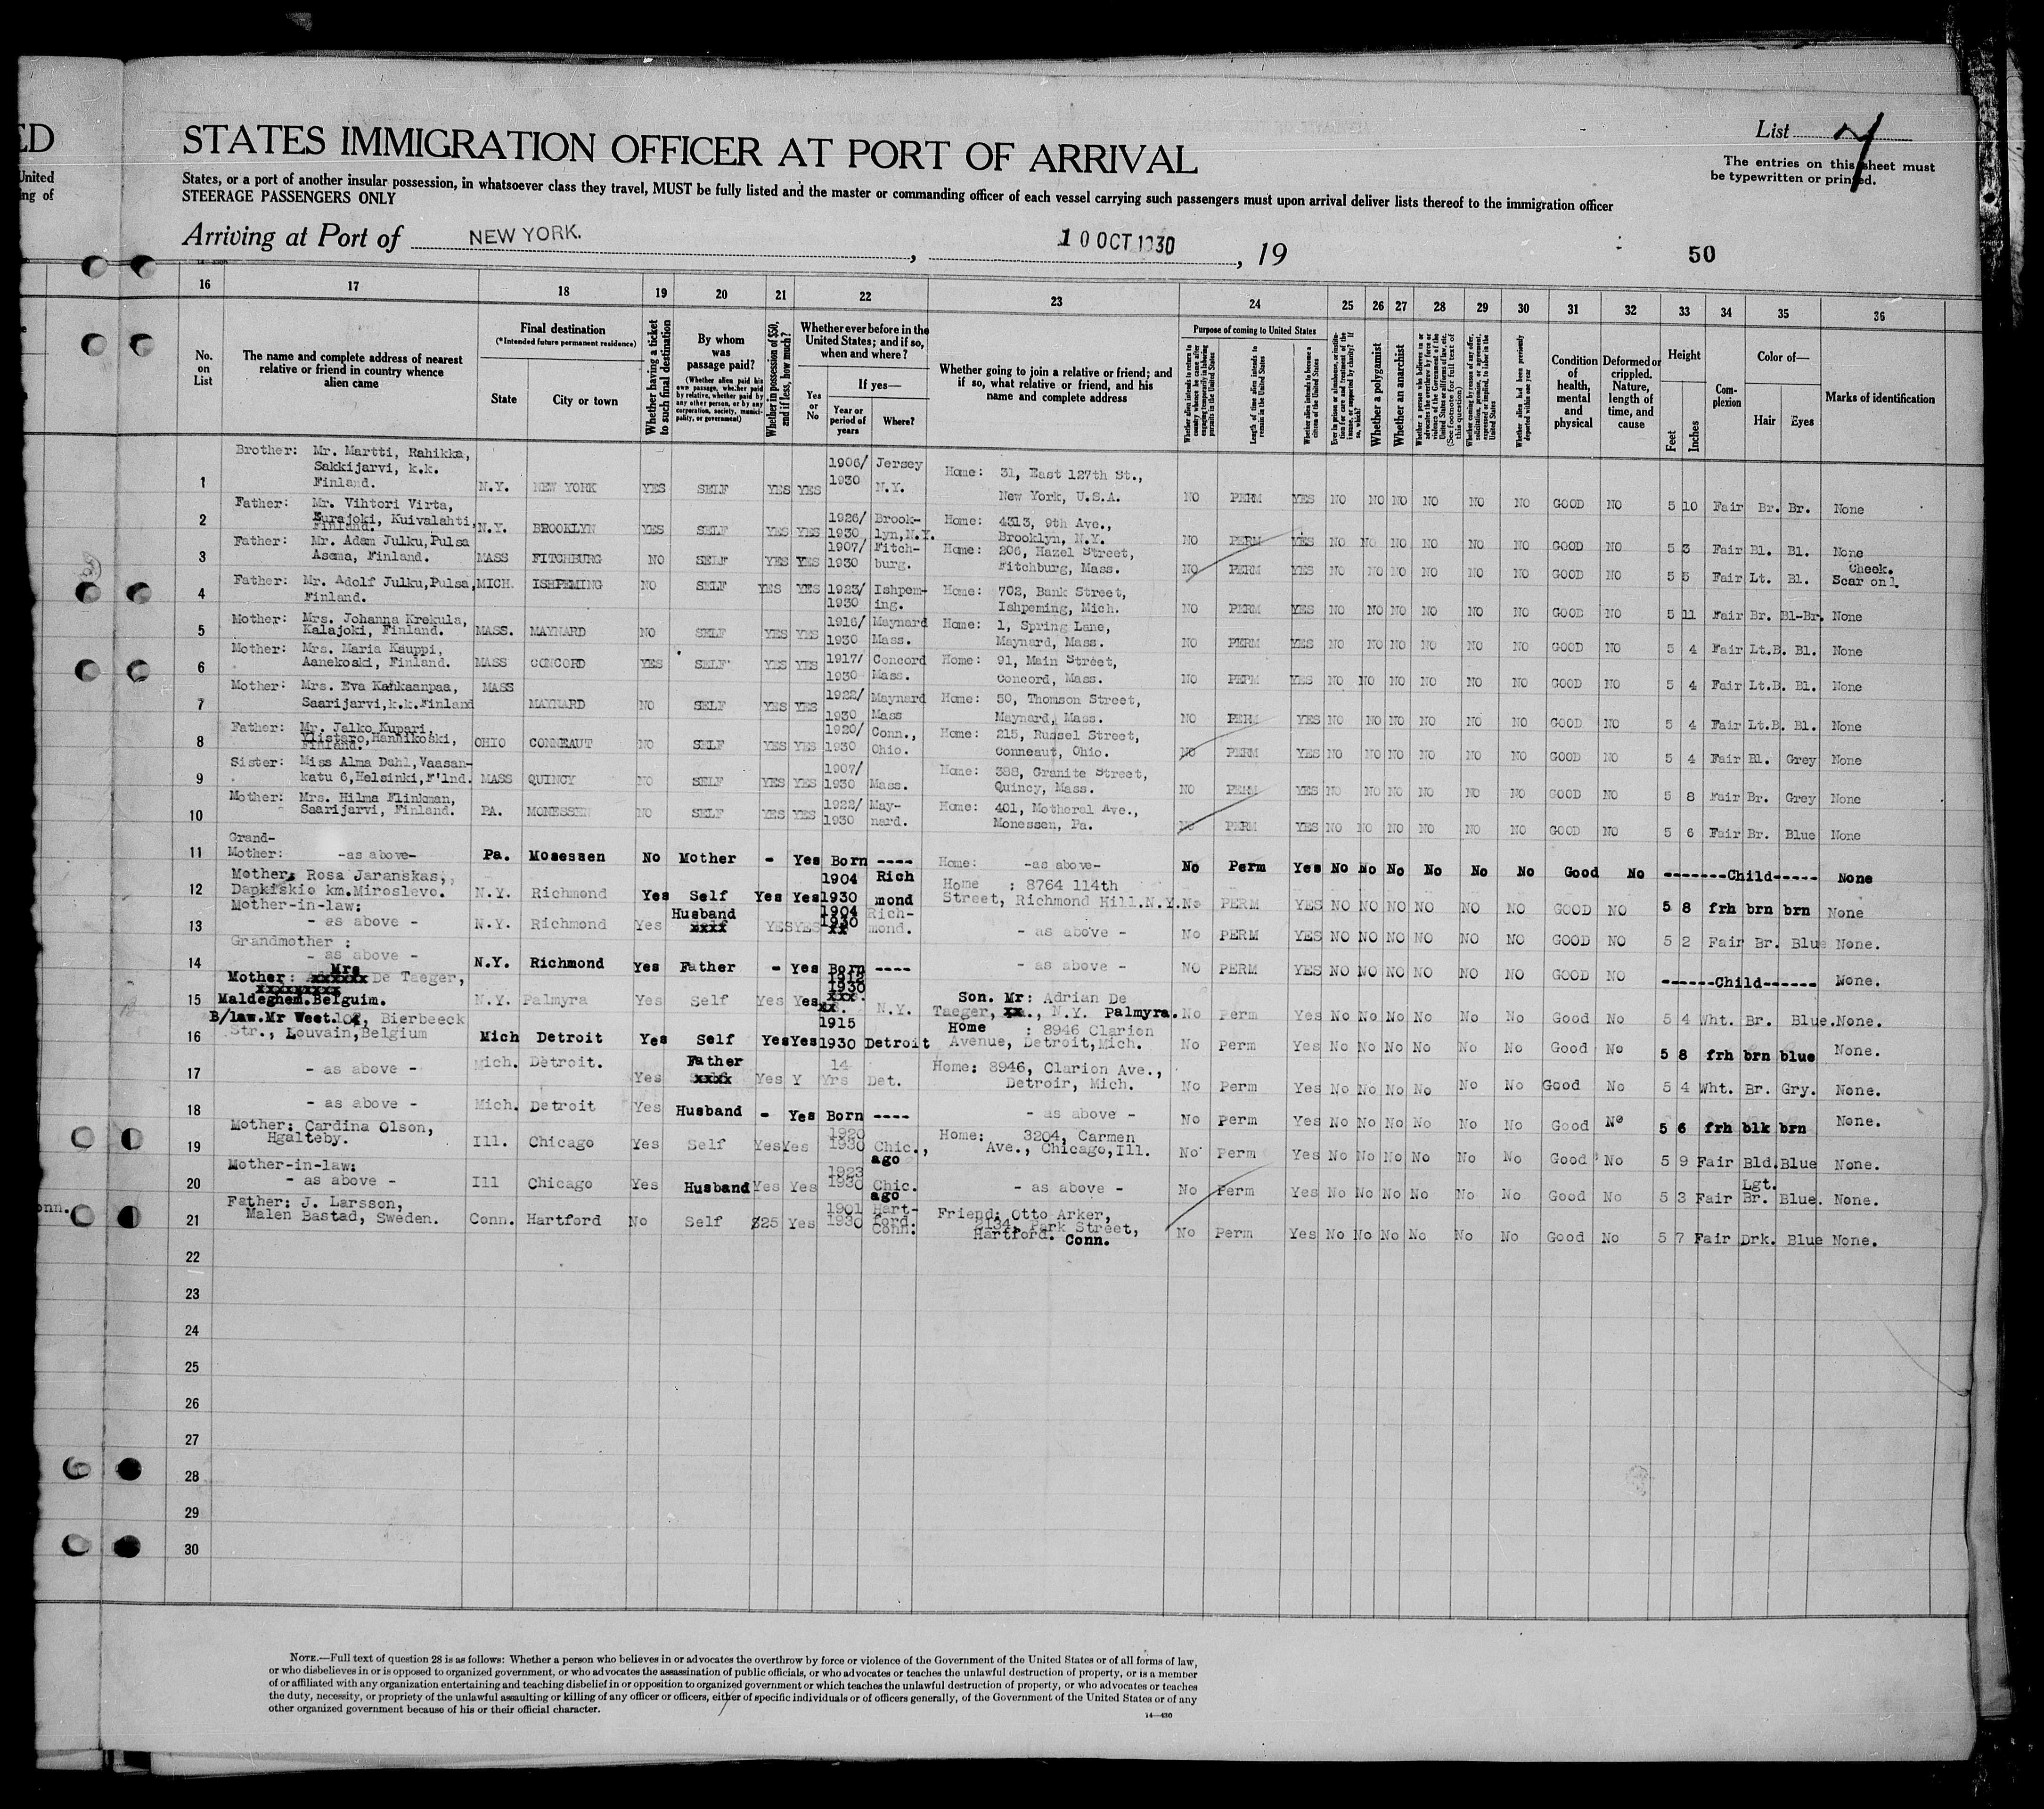 ED
United
ing of
STATES IMMIGRATION OFFICER AT PORT OF ARRIVAL
List
The entries on this sheet must
be typewritten or printed.
States, or a port of another insular possession, in whatsoever class they travel, MUST be fully listed and the master or commanding officer of each vessel carrying such passengers must upon arrival deliver lists thereof to the immigration officer
STEERAGE PASSENGERS ONLY
Arriving at Port of NEW YORK. , 10 OCT 1930 , 19
50
16 17 18 19 20 21 22 23 24 25 26 27 28 29 30 31 32 33 34 35 36
No. on List
The name and complete address of nearest relative or friend in country whence alien came
Final destination
(*Intended future permanent residence)
State
City or town
Whether having a ticket to such final destination
By whom was passage paid?
(Whether alien paid his own passage, whether paid by relative, whether paid by any other person, or by any corporation, society, municipality, or government)
Whether in possession of $50, and if less, how much?
Whether ever before in the United States; and if so, when and where?
Yes or No
If yes—
Year or period of years
Where?
Whether going to join a relative or friend; and if so, what relative or friend, and his name and complete address
Purpose of coming to United States
Length of time alien intends to remain in the United States
Whether alien intends to become a citizen of the United States
Whether a polygamist
Whether an anarchist
Whether alien had been previously deported within one year
Condition of health, mental and physical
Deformed or crippled. Nature, length of time, and cause
Height
Feet
Inches
Complexion
Color of—
Hair
Eyes
Marks of identification
1 Brother: Mr. Martti, Rahikka, Sakkijarvi, k.k. Finland. N.Y. NEW YORK YES SELF YES YES 1906/1930 Jersey N.Y. Home: 31, East 127th St., New York, U.S.A. NO PERM YES NO NO NO NO NO NO GOOD NO 5 10 Fair Br. Br. None
2 Father: Mr. Vihtori Virta, Eurajoki, Kuivalahti, Finland. N.Y. BROOKLYN YES SELF YES YES 1926/1930 Brooklyn, N.Y. Home: 4313, 9th Ave., Brooklyn, N.Y. NO PERM YES NO NO NO NO NO NO GOOD NO 5 3 Fair Bl. Bl. None
3 Father: Mr. Adam Julku, Pulsa Asema, Finland. MASS FITCHBURG NO SELF YES YES 1907/1930 Fitchburg. Home: 206, Hazel Street, Fitchburg, Mass. NO PERM YES NO NO NO NO NO NO GOOD NO 5 5 Fair Lt. Bl. Cheek. Scar on l.
4 Father: Mr. Adolf Julku, Pulsa, Finland. MICH. ISHPEMING NO SELF YES YES 1923/1930 Ishpeming. Home: 702, Bank Street, Ishpeming, Mich. NO PERM YES NO NO NO NO NO NO GOOD NO 5 11 Fair Br. Bl-Br. None
5 Mother: Mrs. Johanna Krekula, Kalajoki, Finland. MASS. MAYNARD NO SELF YES YES 1916/1930 Maynard Mass. Home: 1, Spring Lane, Maynard, Mass. NO PERM YES NO NO NO NO NO NO GOOD NO 5 4 Fair Lt.B. Bl. None
6 Mother: Mrs. Maria Kauppi, Aanekoski, Finland. MASS CONCORD YES SELF YES YES 1917/1930 Concord Mass. Home: 91, Main Street, Concord, Mass. NO PERM YES NO NO NO NO NO NO GOOD NO 5 4 Fair Lt.B. Bl. None
7 Mother: Mrs. Eva Kahkaanpaa, Saarijarvi, k.k. Finland MASS MAYNARD NO SELF YES YES 1922/1930 Maynard Mass Home: 50, Thomson Street, Maynard, Mass. NO PERM YES NO NO NO NO NO NO GOOD NO 5 4 Fair Lt.B. Bl. None
8 Father: Mr. Jalko Kupari, Ylistaro, Hannikoski, Finland. OHIO CONNEAUT NO SELF YES YES 1920/1930 Conn., Ohio. Home: 215, Russel Street, Conneaut, Ohio. NO PERM YES NO NO NO NO NO NO GOOD NO 5 4 Fair Bl. Grey None
9 Sister: Miss Alma Dahl, Vaasankatu 6, Helsinki, F'lnd. MASS QUINCY NO SELF YES YES 1907/1930 Mass. Home: 388, Granite Street, Quincy, Mass. NO PERM YES NO NO NO NO NO NO GOOD NO 5 8 Fair Br. Grey None
10 Mother: Mrs. Hilma Flinkman, Saarijarvi, Finland. PA. MONESSEN NO SELF YES YES 1922/1930 Maynard. Home: 401, Motheral Ave., Monessen, Pa. NO PERM YES NO NO NO NO NO NO GOOD NO 5 6 Fair Br. Blue None
11 Grand-Mother: -as above- Pa. Mosessen No Mother - Yes Born ---- Home: -as above- No Perm Yes No No No No No No Good No -------Child----- None
12 Mother: Rosa Jaranskas, Dapkiskio km. Miroslevo. N.Y. Richmond Yes Self Yes Yes 1904 1930 Richmond Home : 8764 114th Street, Richmond Hill.N.Y. No PERM YES NO NO NO NO NO NO GOOD NO 5 8 frh brn brn None
13 Mother-in-law: - as above - N.Y. Richmond Yes Husband YES YES 1904 1930 Richmond. - as above - No PERM YES NO NO NO NO NO NO GOOD NO 5 2 Fair Br. Blue None.
14 Grandmother : - as above - N.Y. Richmond Yes Father - Yes Born ---- - as above - NO PERM YES NO NO NO NO NO NO GOOD NO ------Child------ None.
15 Mother: Mrs De Taeger, Maldeghem.Belguim. N.Y. Palmyra Yes Self Yes Yes 1912 1930 N.Y. Son. Mr: Adrian De Taeger, N.Y. Palmyra. No Perm Yes No No No No No No Good No 5 4 Wht. Br. Blue. None.
16 B/law. Mr Weet. 102, Bierbeeck Str., Louvain, Belgium Mich Detroit Yes Self Yes Yes 1915 1930 Detroit Home : 8946 Clarion Avenue, Detroit, Mich. No Perm Yes No No No No No No Good No 5 8 frh brn blue None.
17 - as above - Mich. Detroit. Yes Father Yes Y 14 Yrs Det. Home: 8946, Clarion Ave., Detroir, Mich. No Perm Yes No No No No No No Good No 5 4 Wht. Br. Gry. None.
18 - as above - Mich. Detroit Yes Husband - Yes Born ---- - as above - No Perm Yes No No No No No No Good No 5 6 frh blk brn None.
19 Mother: Cardina Olson, Hgalteby. Ill. Chicago Yes Self Yes Yes 1920 1930 Chic., ago Home: 3204, Carmen Ave., Chicago, Ill. No Perm Yes No No No No No No Good No 5 9 Fair Bld. Blue None.
20 Mother-in-law: - as above - Ill Chicago Yes Husband Yes Yes 1923 1930 Chic. ago - as above - No Perm Yes No No No No No No Good No 5 3 Fair Lgt. Br. Blue. None.
21 Father: J. Larsson, Malen Bastad, Sweden. Conn. Hartford No Self $25 Yes 1901 1930 Hartford Conn. Friend: Otto Arker, 2134, Park Street, Hartford. Conn. No Perm Yes No No No No No No Good No 5 7 Fair Drk. Blue None.
onn.
22
23
24
25
26
27
28
29
30
NOTE.—Full text of question 28 is as follows: Whether a person who believes in or advocates the overthrow by force or violence of the Government of the United States or of all forms of law,
or who disbelieves in or is opposed to organized government, or who advocates the assassination of public officials, or who advocates or teaches the unlawful destruction of property, or is a member
of or affiliated with any organization entertaining and teaching disbelief in or opposition to organized government or which teaches the unlawful destruction of property, or who advocates or teaches
the duty, necessity, or propriety of the unlawful assaulting or killing of any officer or officers, either of specific individuals or of officers generally, of the Government of the United States or of any
other organized government because of his or their official character.
14—430